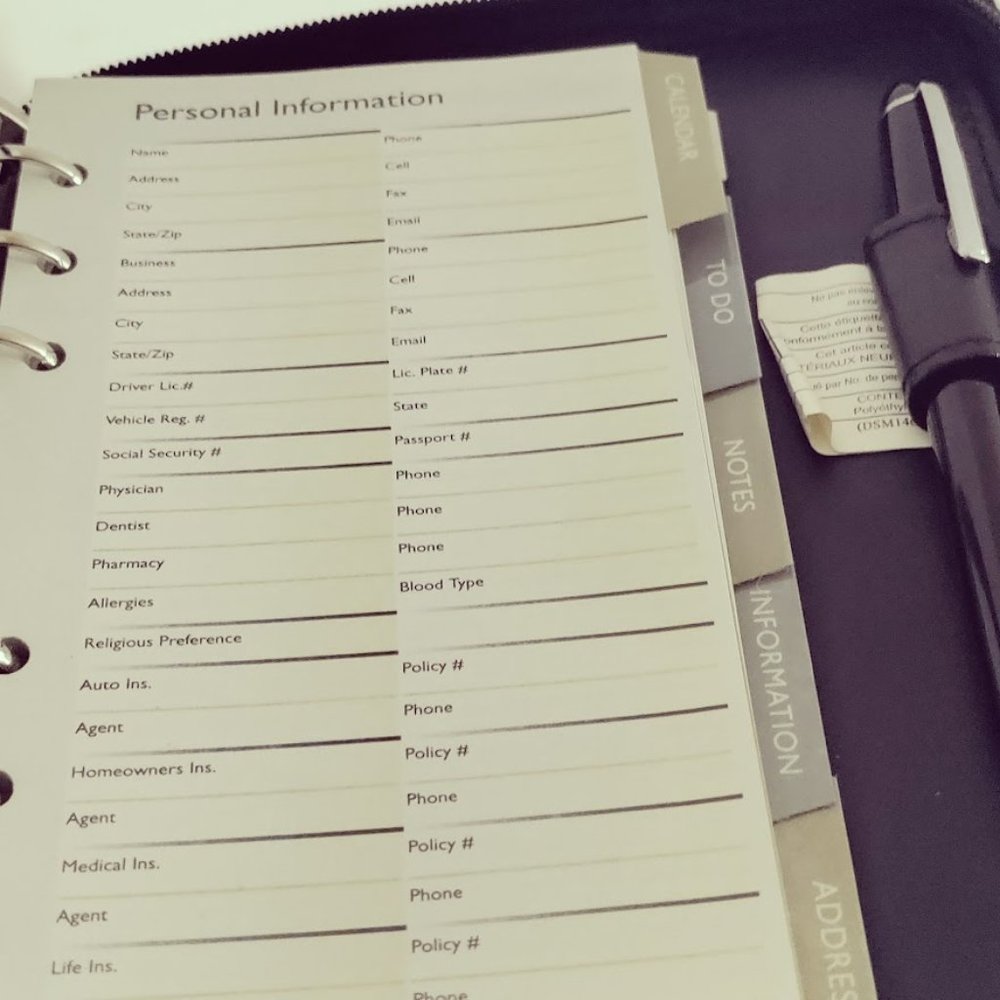 Personal Information
Name
Address
City
State/Zip
Business
Address
City
State/Zip
Driver Lic.#
Vehicle Reg. #
Social Security #
Physician
Dentist
Pharmacy
Allergies
Religious Preference
Auto Ins.
Agent
Homeowners Ins.
Agent
Medical Ins.
Agent
Life Ins.
Phone
Cell
Fax
Email
Phone
Cell
Fax
Email
Lic. Plate #
State
Passport #
Phone
Phone
Phone
Blood Type
Policy #
Phone
Policy #
Phone
Policy #
Phone
Policy #
Phone
CALENDAR
TO DO
NOTES
INFORMATION
ADDRES
Ne pas
Cette étiquette
conformément à
Cet article
par No. de
CONTE
(DSM14